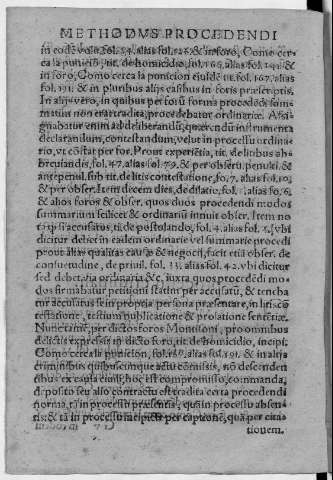 METHODVS PROCEDENDI
in eodē volu. fol. 54. alias fol. & in foro, Como cer-
ca la punició, tit. de homicidio, fol. 165. alias fol. 191. & in
in foro, Como cerca la punicion eiusdē tit. fol. 167. alias
fol. 191. & in pluribus alijs casibus in foris præscriptis.
In alijs vero, in quibus per forū forma procedēdi sum-
matim non erat tradita, procedebatur ordinariæ. Assi-
gnabatur enim ad deliberandū, quærendū instrumenta
declarandum, contestandum, velut in processu ordina-
rio, vt cōstat per for. Prout experiētia, tit. de litibus ab-
breuiandis, fol. 47. alias fol. 79. & per obseru. penul. &
antepenul. sub tit. de litis contestatione, fo. 7. alias fol. 10.
& per obser. Item decem dies, de dilatio, fol. alias fo. 6.
& alios foros & obser. quos duos procedendi modos
summarium scilicet & ordinariū innuit obser. Item no
si accusatus, tit. de postulando, fol. 4. alias fol. 5. vbi
dicitur debet in eadem ordinarie vel summarie procedi
prout alias qualitas causæ & negocij, facit etiā obser. de
consuetudine, de priuil. fol. 33. alias fol. 42. vbi dicitur
sed debet via ordinaria &c. iuxta quos procedēdi mo-
dos firmabatur petitioni statim per accusatū, & teneba
tur accusatus se in propria persona præsentare, in litis cō
testatione, testium publicatione & prolatione sentētiæ.
Nunc tamē, per dictos foros Montissoni, pro omnibus
delictis expressis in dicto foro, tit. de homicidio, incipi;
Como cerca la punicion, fol. 167. alias fol. 191. & in alijs
criminibus quibuscunque actu cōmissis, nō descenden
tibus ex causa ciuili, hoc est compromisso, commanda,
deposito seu alio contractu est tradita certa procedendi
norma, tā in processu præsentis, quā in processu absen-
tis: & tā in processu incipiēte per captionē, quā per cita
tionem.